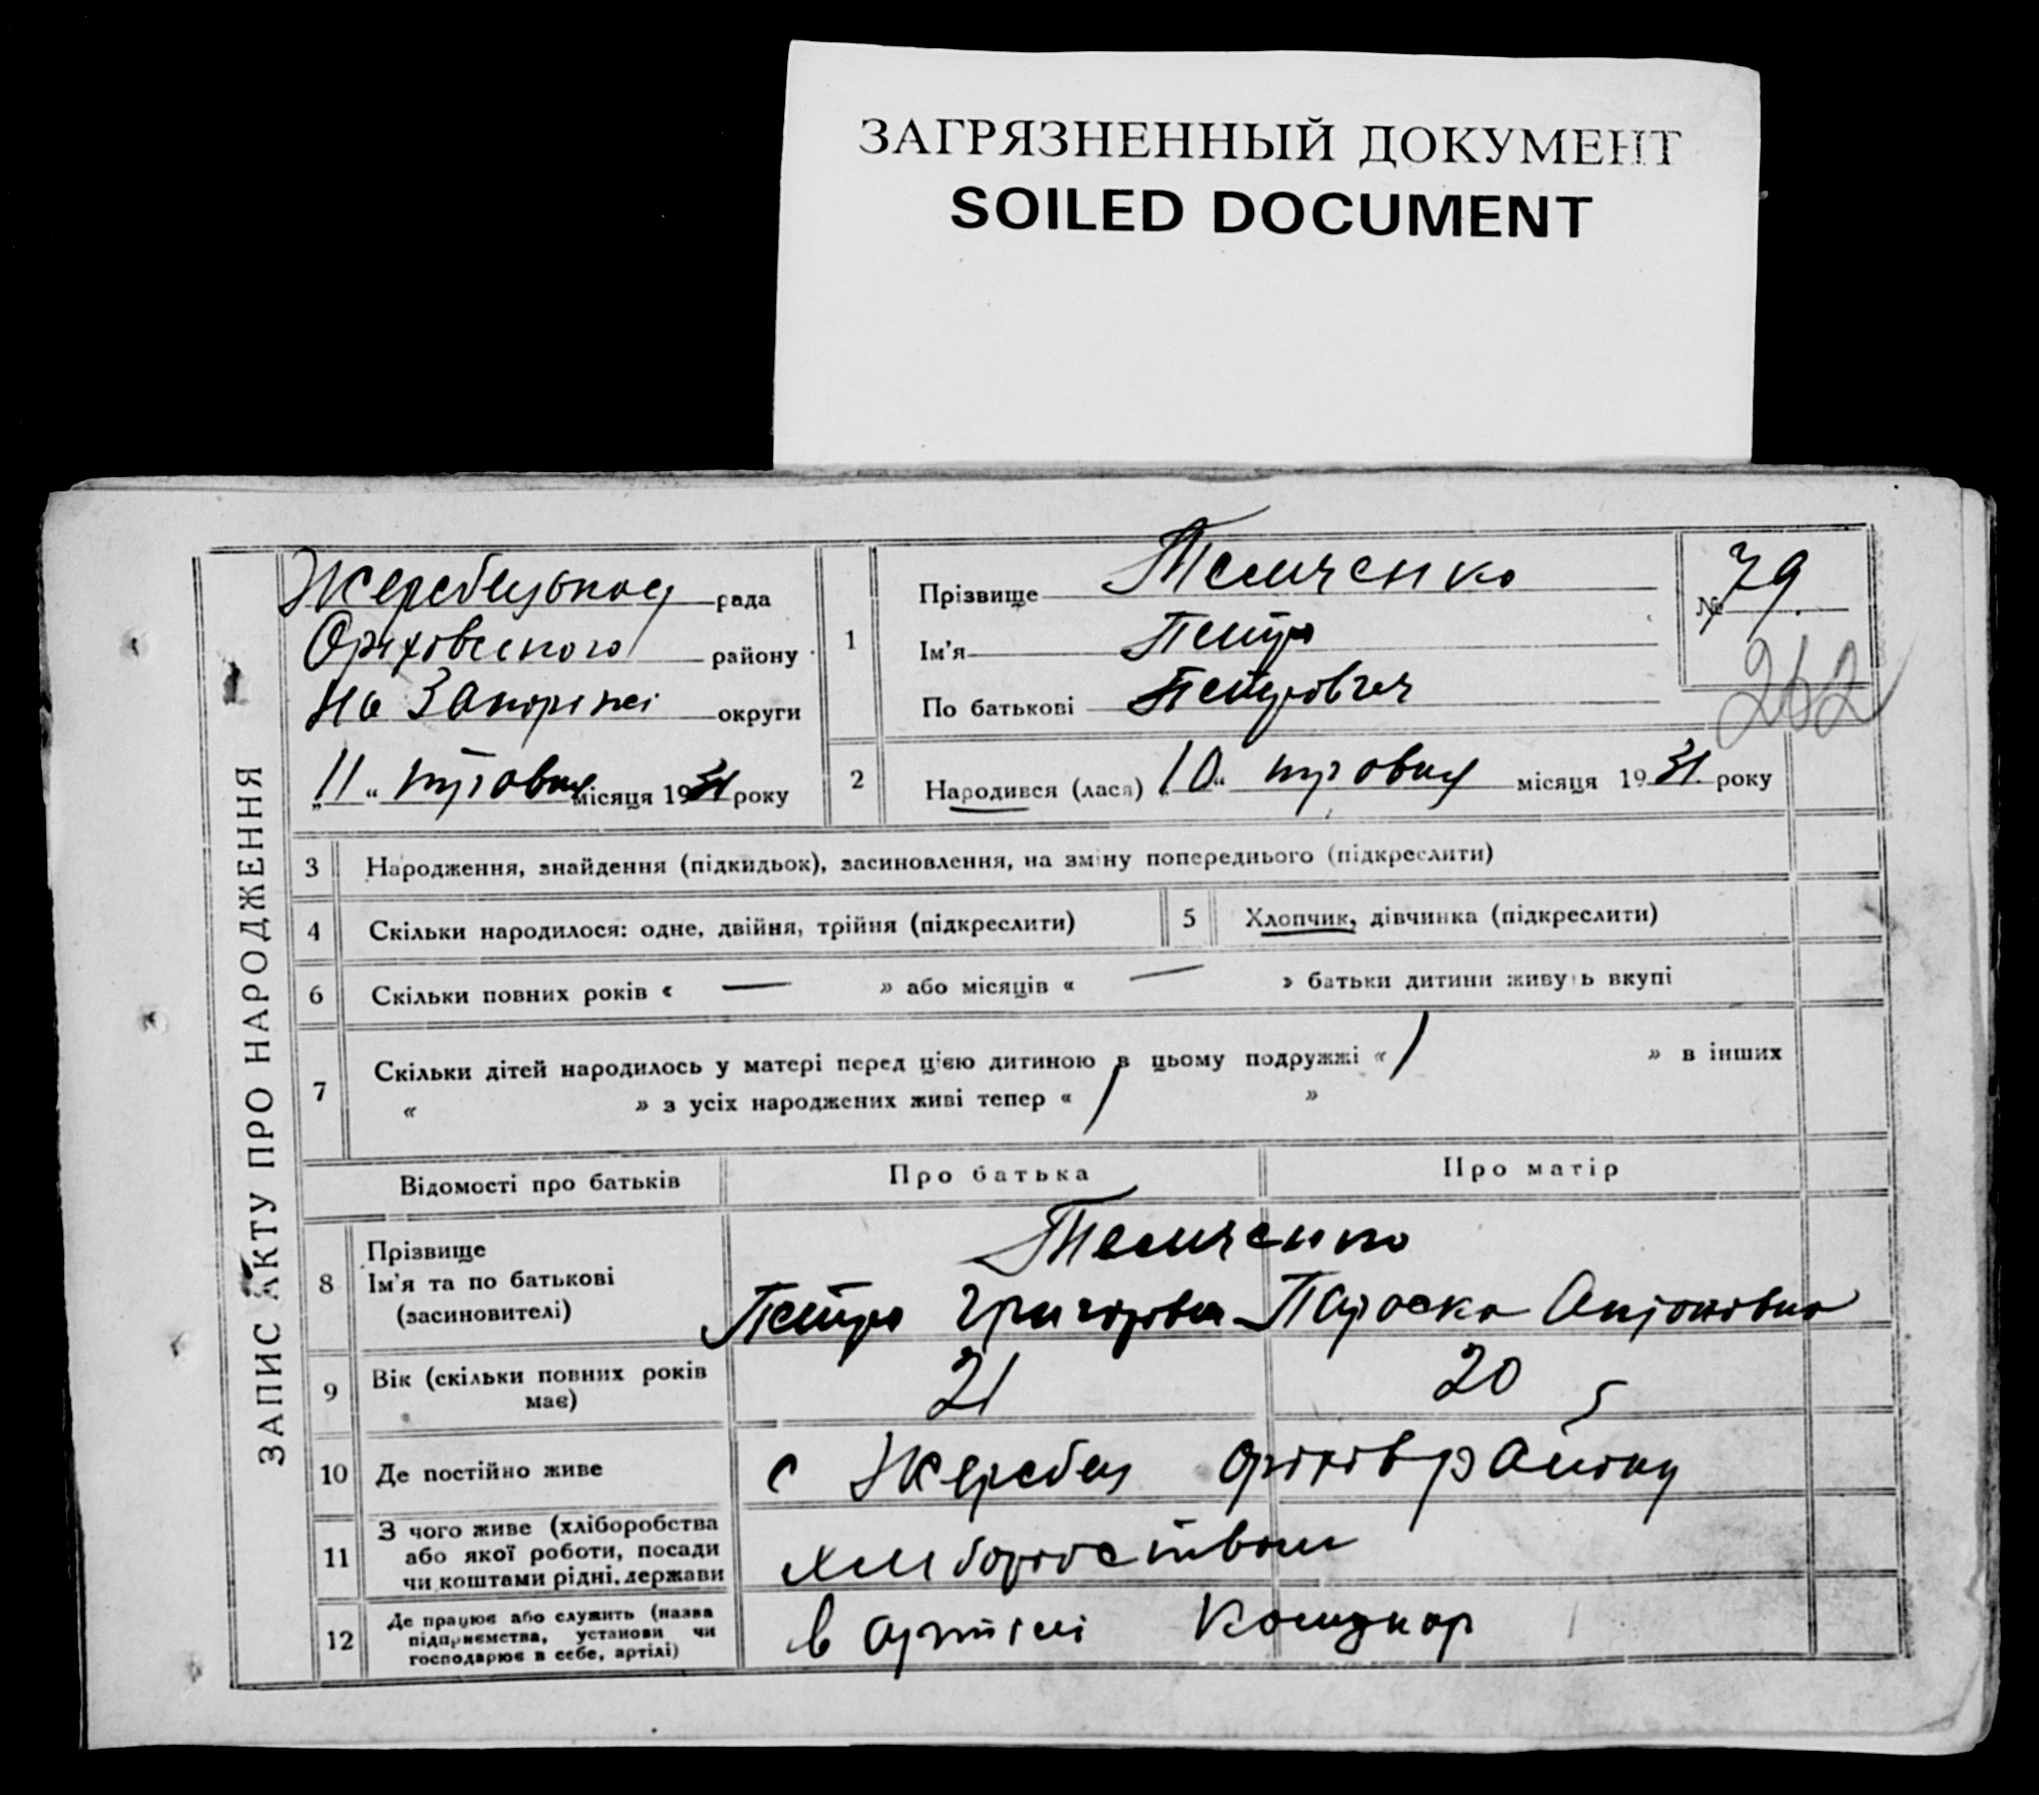 ЗАГРЯЗНЕННЫЙ ДОКУМЕНТ
SOILED DOCUMENT
ЗАПИС АКТУ ПРО НАРОДЖЕННЯ
рада
району
На Запоріжі округи
„11“ травня місяця 1931 року
1
Прізвище Темченко
Ім'я Петро
По батькові Петрович
№ 79
262
2
Народився (лася) „10“ травня місяця 1931 року
3 Народження, знайдення (підкидьок), засиновлення, на зміну попереднього (підкреслити)
4 Скільки народилося: одне, двійня, трійня (підкреслити)
5 Хлопчик, дівчинка (підкреслити)
6 Скільки повних років « — » або місяців « — » батьки дитини живуть вкупі
7 Скільки дітей народилось у матері перед цією дитиною в цьому подружжі « 1 » в інших
« » з усіх народжених живі тепер « 1 »
Відомості про батьків Про батька Про матір
8 Прізвище
Ім'я та по батькові
(засиновителі)
Темченко
Петро Параска
9 Вік (скільки повних років
має)
21 20
10 Де постійно живе с Жеребец району
11 З чого живе (хліборобства
або якої роботи, посади
чи коштами рідні, держави
12 Де працює або служить (назва
підприємства, установи чи
господарює в себе, артілі)
в артілі Комунар